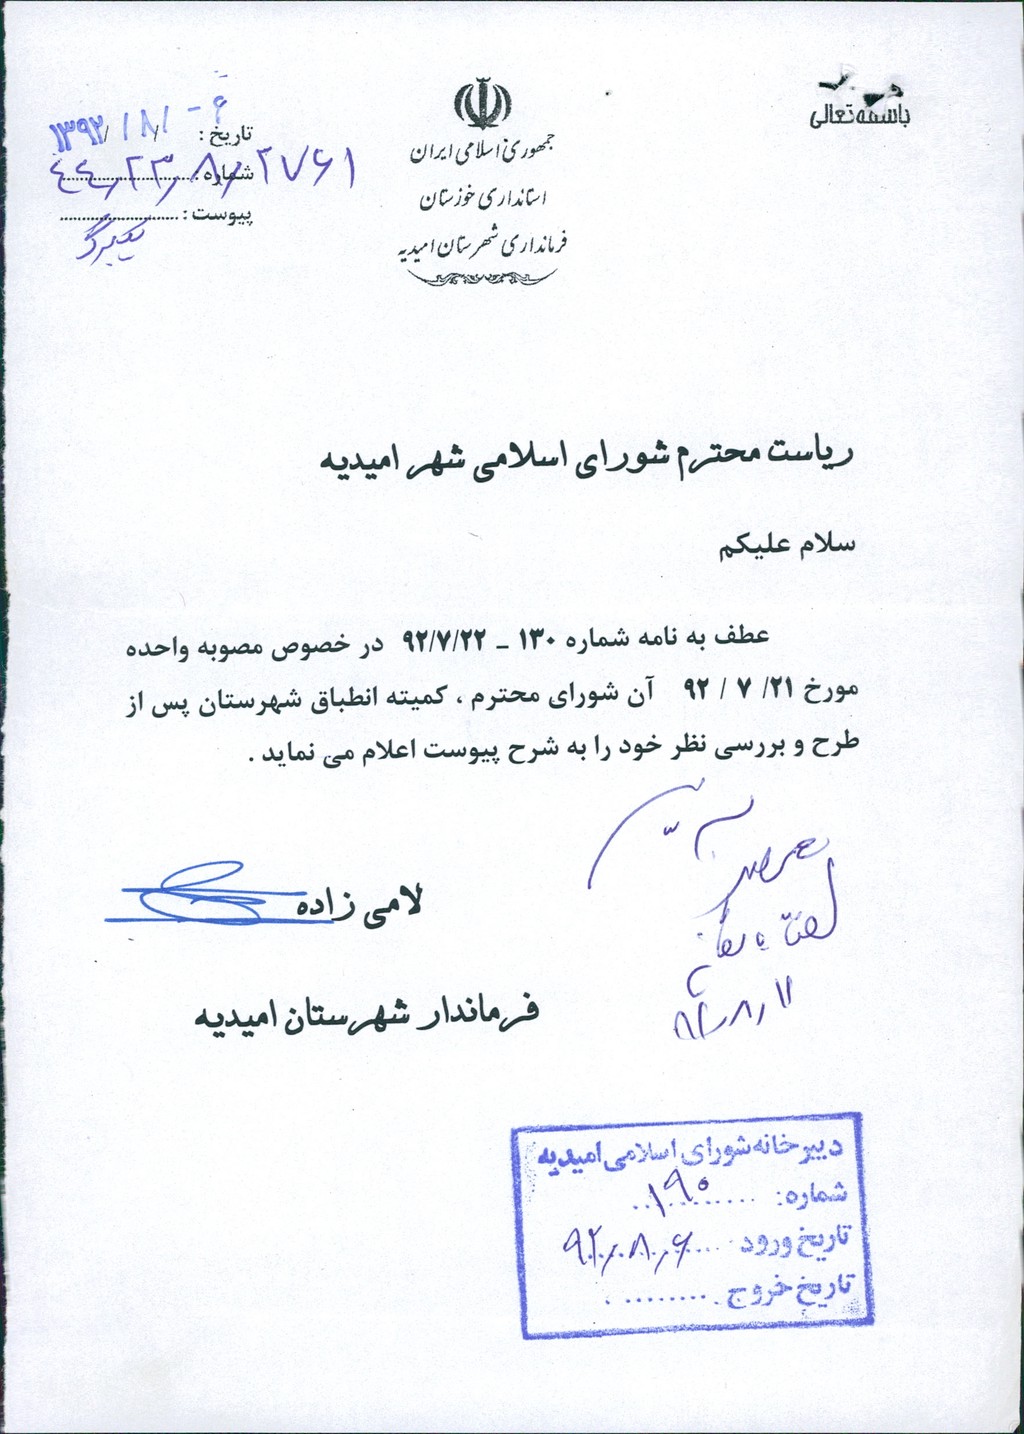 باسمه تعالی
جمهوری اسلامی ایران
استانداری خوزستان
فرمانداری شهرستان امیدیه
تاریخ : ۱۳۹۲/ ۸/ -۶
شماره : ۴۴٫۲۳٫۸٫۲۷۶۱
پیوست :
یکبرگ
ریاست محترم شورای اسلامی شهر امیدیه
سلام علیکم
عطف به نامه شماره ۱۳۰ ـ ۹۲/۷/۲۲ در خصوص مصوبه واحده
مورخ ۲۱/ ۷ / ۹۲ آن شورای محترم ، کمیته انطباق شهرستان پس از
طرح و بررسی نظر خود را به شرح پیوست اعلام می نماید .
لامی زاده
فرماندار شهرستان امیدیه
۹۲٫۸٫۱۱
دبیرخانه شورای اسلامی امیدیه
شماره: ۱۹۵
تاریخ ورود ۹۲٫۸٫۶
تاریخ خروج